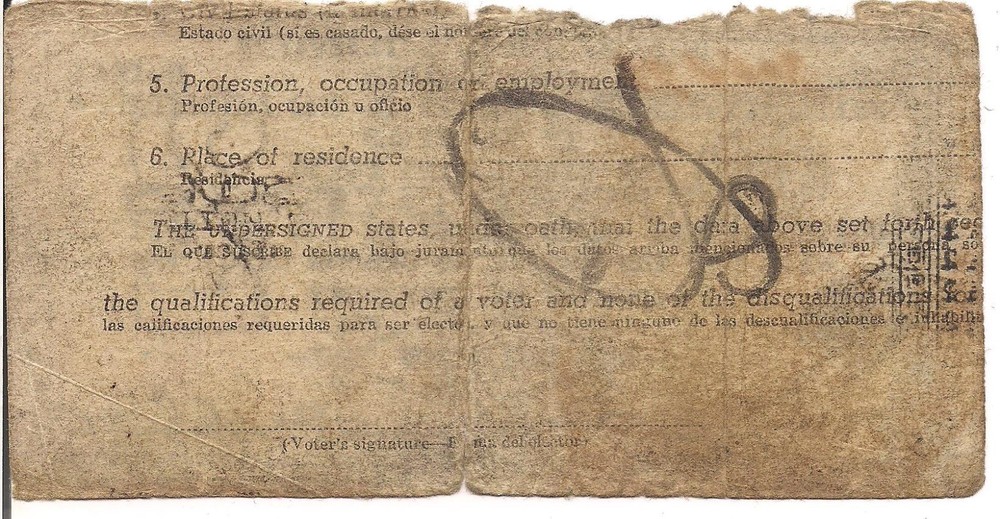 Civil status (if married,
Estado civil (si es casado, dése el nombre del cónyuge)
5. Profession, occupation or employment
Profesión, ocupación u oficio
6. Place of residence
Residencia
THE UNDERSIGNED states, under oath, that the data above set forth
EL QUE SUSCRIBE declara bajo juramento que los datos arriba mencionados sobre su persona so
the qualifications required of a voter and none of the disqualifications for
las calificaciones requeridas para ser elector, y que no tiene ninguno de las descualificaciones e inhabilita
(Voter's signature—Firma del elector)